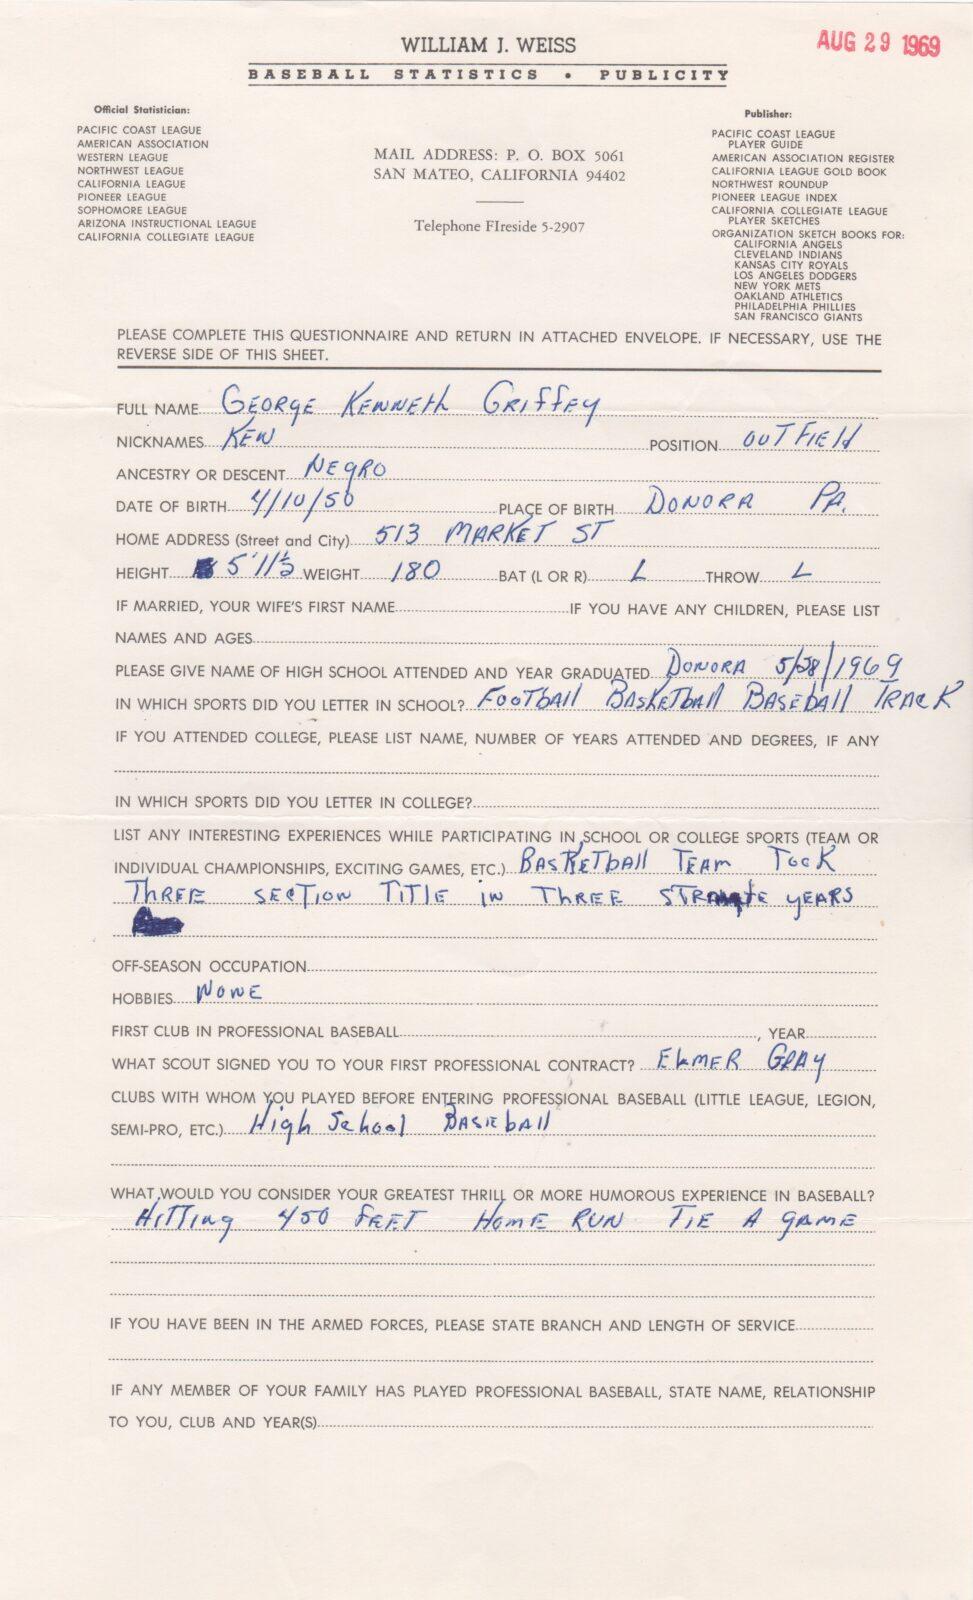 WILLIAM J. WEISS
AUG 29 1969
BASEBALL STATISTICS • PUBLICITY
Official Statistician:
PACIFIC COAST LEAGUE
AMERICAN ASSOCIATION
WESTERN LEAGUE
NORTHWEST LEAGUE
CALIFORNIA LEAGUE
PIONEER LEAGUE
SOPHOMORE LEAGUE
ARIZONA INSTRUCTIONAL LEAGUE
CALIFORNIA COLLEGIATE LEAGUE
MAIL ADDRESS: P. O. BOX 5061
SAN MATEO, CALIFORNIA 94402
Telephone FIreside 5-2907
Publisher:
PACIFIC COAST LEAGUE
PLAYER GUIDE
AMERICAN ASSOCIATION REGISTER
CALIFORNIA LEAGUE GOLD BOOK
NORTHWEST ROUNDUP
PIONEER LEAGUE INDEX
CALIFORNIA COLLEGIATE LEAGUE
PLAYER SKETCHES
ORGANIZATION SKETCH BOOKS FOR:
CALIFORNIA ANGELS
CLEVELAND INDIANS
KANSAS CITY ROYALS
LOS ANGELES DODGERS
NEW YORK METS
OAKLAND ATHLETICS
PHILADELPHIA PHILLIES
SAN FRANCISCO GIANTS
PLEASE COMPLETE THIS QUESTIONNAIRE AND RETURN IN ATTACHED ENVELOPE. IF NECESSARY, USE THE
REVERSE SIDE OF THIS SHEET.
FULL NAME GEORGE KENNETH GRIFFEY
NICKNAMES KEN POSITION OUTFIELD
ANCESTRY OR DESCENT NEGRO
DATE OF BIRTH 4/10/50 PLACE OF BIRTH DONORA PA.
HOME ADDRESS (Street and City) 513 MARKET ST
HEIGHT 5'11½ WEIGHT 180 BAT (L OR R) L THROW L
IF MARRIED, YOUR WIFE'S FIRST NAME IF YOU HAVE ANY CHILDREN, PLEASE LIST
NAMES AND AGES
PLEASE GIVE NAME OF HIGH SCHOOL ATTENDED AND YEAR GRADUATED DONORA 5/28/1969
IN WHICH SPORTS DID YOU LETTER IN SCHOOL? FOOTBALL BASKETBALL BASEBALL TRACK
IF YOU ATTENDED COLLEGE, PLEASE LIST NAME, NUMBER OF YEARS ATTENDED AND DEGREES, IF ANY
IN WHICH SPORTS DID YOU LETTER IN COLLEGE?
LIST ANY INTERESTING EXPERIENCES WHILE PARTICIPATING IN SCHOOL OR COLLEGE SPORTS (TEAM OR
INDIVIDUAL CHAMPIONSHIPS, EXCITING GAMES, ETC.) BASKETBALL TEAM TOOK
THREE SECTION TITLE IN THREE YEARS
OFF-SEASON OCCUPATION
HOBBIES NONE
FIRST CLUB IN PROFESSIONAL BASEBALL , YEAR
WHAT SCOUT SIGNED YOU TO YOUR FIRST PROFESSIONAL CONTRACT? ELMER GRAY
CLUBS WITH WHOM YOU PLAYED BEFORE ENTERING PROFESSIONAL BASEBALL (LITTLE LEAGUE, LEGION,
SEMI-PRO, ETC.) High School BASEBALL
WHAT WOULD YOU CONSIDER YOUR GREATEST THRILL OR MORE HUMOROUS EXPERIENCE IN BASEBALL?
HITTING 450 FEET HOME RUN TIE A GAME
IF YOU HAVE BEEN IN THE ARMED FORCES, PLEASE STATE BRANCH AND LENGTH OF SERVICE
IF ANY MEMBER OF YOUR FAMILY HAS PLAYED PROFESSIONAL BASEBALL, STATE NAME, RELATIONSHIP
TO YOU, CLUB AND YEAR(S)